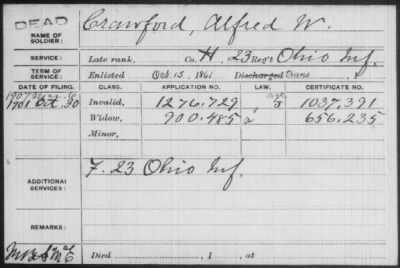 DEAD
NAME OF SOLDIER: Crawford, Alfred W.
SERVICE: Late rank, Co. H. 23 Reg't Ohio Inf.
TERM OF SERVICE: Enlisted Oct. 15, 1861 Discharged Trans , 1
DATE OF FILING. CLASS. APPLICATION NO. LAW. CERTIFICATE NO.
1901 Oct. 30 Invalid, 1276.729 1037.391
Widow, 900.485 656.235
Minor,
ADDITIONAL SERVICES: F. 23 Ohio Inf.
REMARKS:
Died , 1 , at